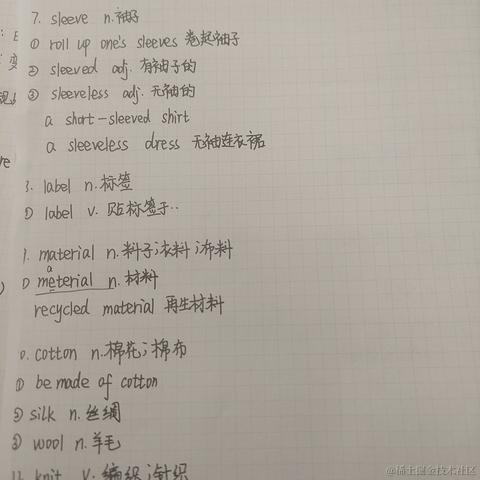 7. sleeve n.袖子
① roll up one's sleeves 卷起袖子
② sleeved adj. 有袖子的
③ sleeveless adj. 无袖的
a short-sleeved shirt
a sleeveless dress 无袖连衣裙
3. label n.标签
① label v. 贴标签于..
1. material n.料子;衣料;布料
① material n.材料
recycled material 再生材料
0. cotton n.棉花;棉布
① be made of cotton
② silk n.丝绸
③ wool n.羊毛
11. knit v.编织;针织
@稀土掘金技术社区